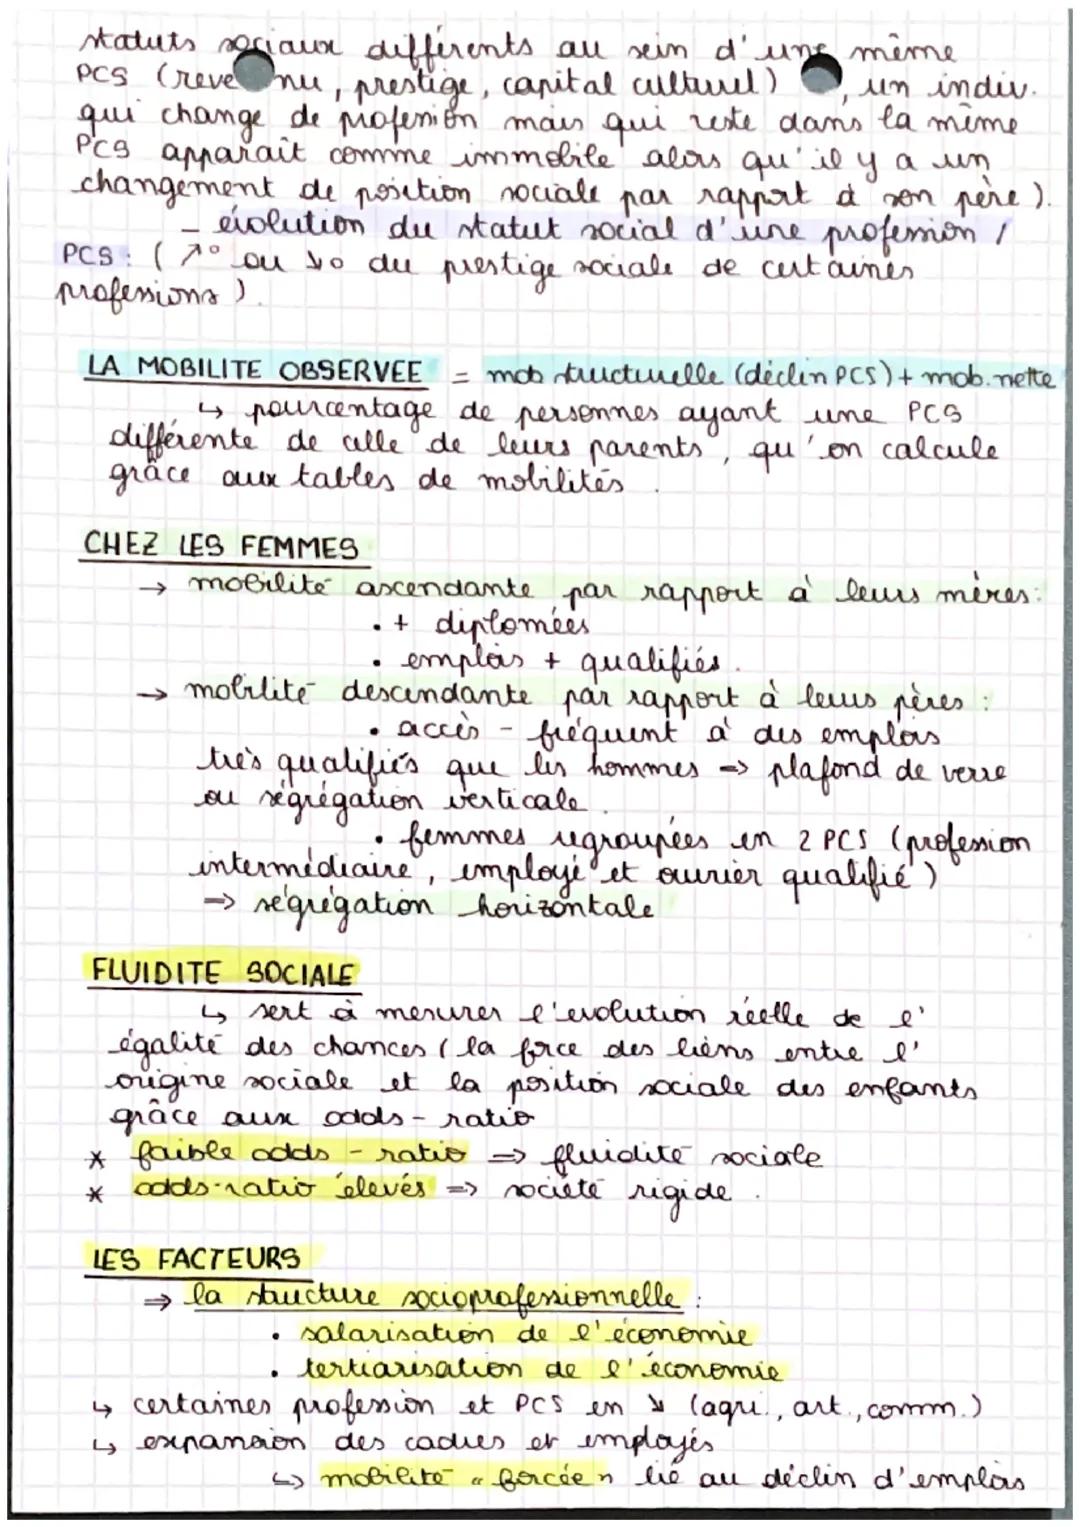 statuts sociaux différents au sein d'une même
PCS (revenu, prestige, capital culturel) , un indiv.
qui change de profession mais qui reste dans la même
PCS apparaît comme immobile alors qu'il y a un
changement de position sociale par rapport à son père).
- évolution du statut social d'une profession /
PCS : ( ↗° ou ↘° du prestige sociale de certaines
professions ).
LA MOBILITE OBSERVEE = mob structurelle (déclin PCS) + mob. nette
↳ pourcentage de personnes ayant une PCS
différente de celle de leurs parents, qu'on calcule
grâce aux tables de mobilités.
CHEZ LES FEMMES
→ mobilité ascendante par rapport à leurs mères :
• + diplomées
• emplois + qualifiés.
→ mobilité descendante par rapport à leurs pères :
• accès - fréquent à des emplois
très qualifiés que les hommes => plafond de verre
ou ségrégation verticale.
• femmes regroupées en 2 PCS (profession
intermédiaire, employé et ouvrier qualifié)
=> ségrégation horizontale
FLUIDITE SOCIALE
↳ sert à mesurer l'évolution réelle de l'
égalité des chances ( la force des liens entre l'
origine sociale et la position sociale des enfants
grâce aux odds-ratio
* faible odds-ratio => fluidité sociale
* odds-ratio élevés => société rigide.
LES FACTEURS
=> la structure socioprofessionnelle :
• salarisation de l'économie
• tertiarisation de l'économie
↳ certaines profession et PCS en ↘ (agri., art., comm.)
↳ expansion des cadres et employés
↳ mobilité « forcée » lié au déclin d'emplois